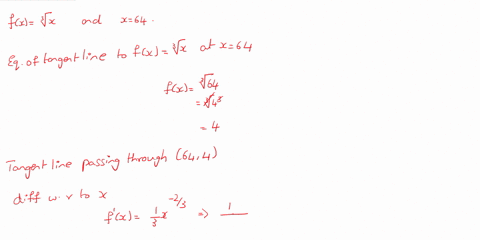 f(x) = ∛x and x=64.
Eq. of tangent line to f(x) = ∛x at x=64
f(x) = ∛64
= ∛4³
= 4
Tangent line passing through (64,4)
diff w.r to x
f'(x) = 1/3 x^(-2/3) => 1/